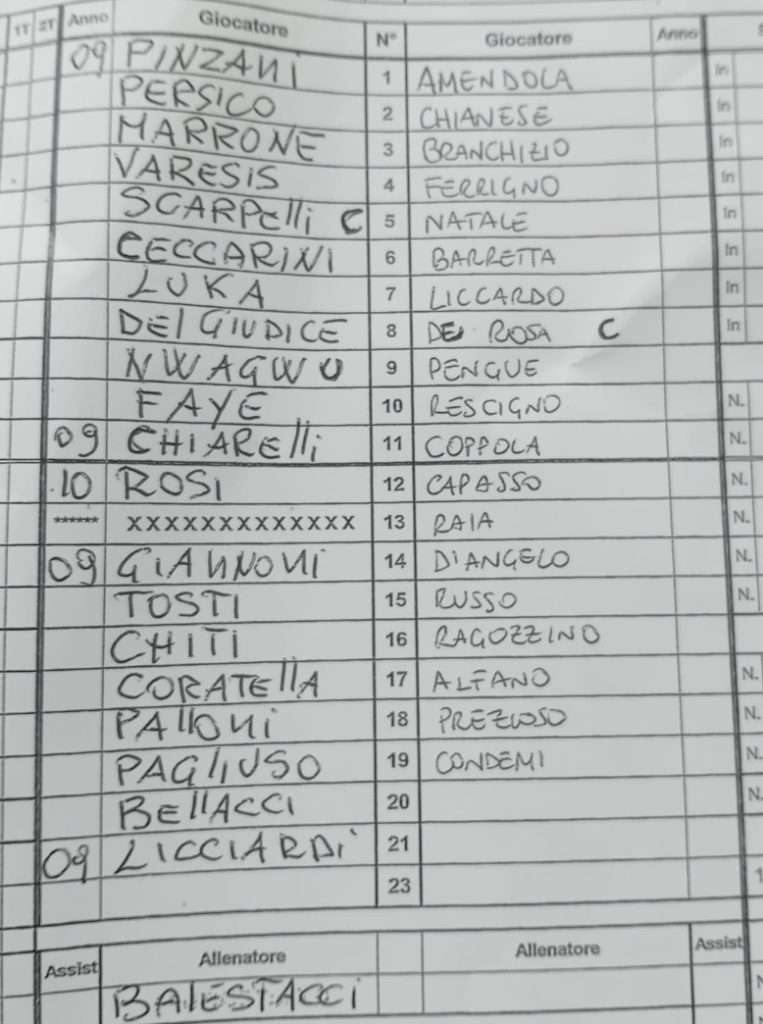 1T 2T Anno Giocatore N° Giocatore Anno S
09 PINZANI 1 AMENDOLA In
PERSICO 2 CHIANESE In
MARRONE 3 BRANCHIZIO In
VARESIS 4 FERRIGNO In
SCARPElli C 5 NATALE In
CECCARINI 6 BARRETTA In
LUKA 7 LICCARDO In
DElGIUDICE 8 DE ROSA C In
NWAGWU 9 PENGUE
FAYE 10 RESCIGNO N.
09 CHIARElli 11 COPPOLA N.
10 ROSI 12 CAPASSO N.
****** XXXXXXXXXXXXX 13 RAIA N.
09 GIANNONI 14 DI ANGELO N.
TOSTI 15 RUSSO N.
CHITI 16 RAGOZZINO
CORATEllA 17 ALFANO N.
PAllONI 18 PREZIOSO N.
PAGLIUSO 19 CONDEMI N.
BEllACCI 20 N.
09 LICCIARDI 21
23 1
Assist Allenatore Allenatore Assist
BAlESTACCI N